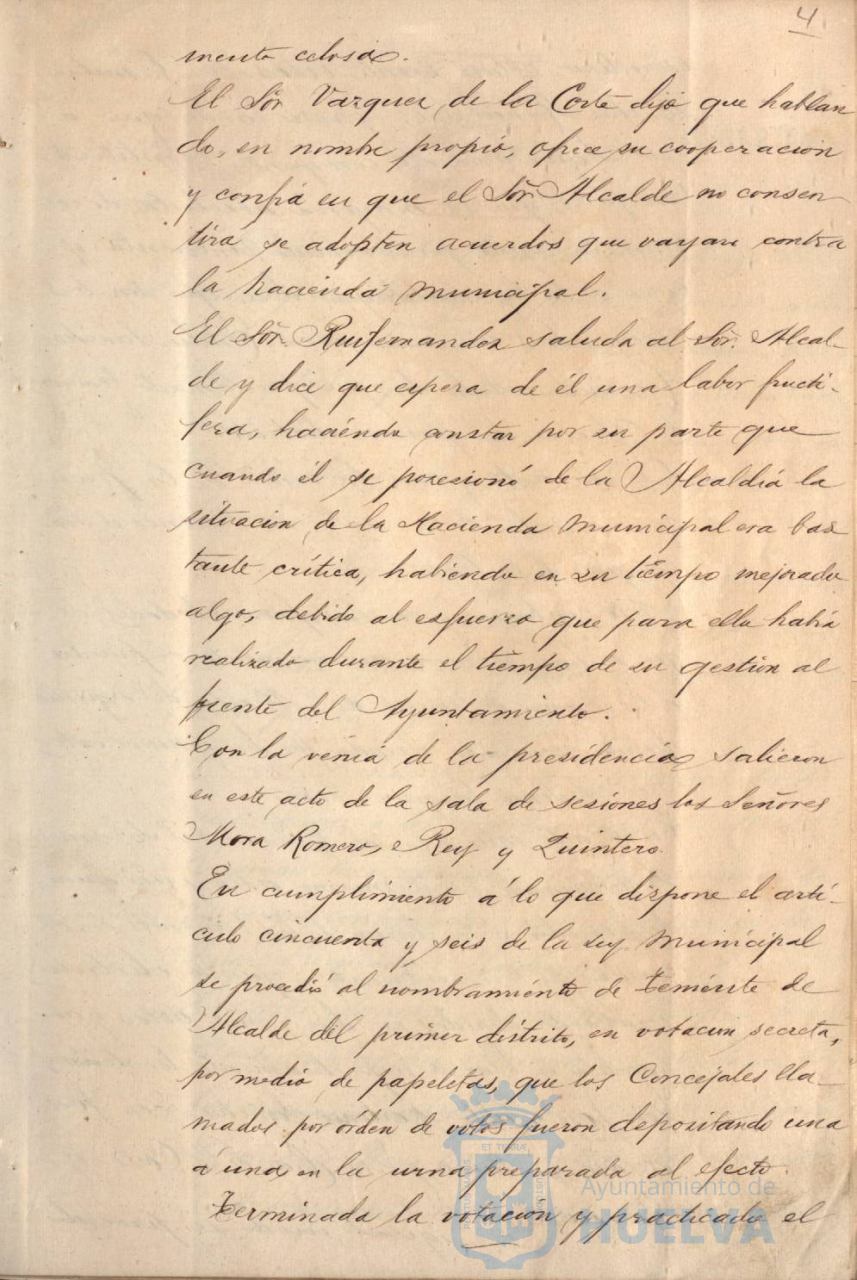 4.
mente celosa.
El Sor. Vazquez de la Corte dijo que hablan
do, en nombre propio, ofrece su cooperacion
y confia en que el Sor. Alcalde no consen-
tirá se adopten acuerdos que vayan contra
la hacienda municipal.
El Sor. Ruifernandez saluda al Sor. Alcal-
de y dice que espera de él una labor fructi-
fera, haciendo constar por su parte que
cuando él se posesionó de la Alcaldia la
situacion de la Hacienda Municipal era bas
tante crítica, habiendo en su tiempo mejorado
algo, debido al esfuerzo que para ello habia
realizado durante el tiempo de su gestion al
frente del Ayuntamiento.
Con la venia de la presidencia salieron
en este acto de la sala de sesiones los Señores
Mora Romero, Rey y Quintero
En cumplimiento á lo que dispone el artí-
culo cincuenta y seis de la Ley Municipal
se procedió al nombramiento de Teniente de
Alcalde del primer distrito, en votacion secreta,
por medio de papeletas, que los Concejales lla-
mados por órden de votos fueron depositando una
á una en la urna preparada al efecto.
Terminada la votación y practicado el
ET TERRÆ
Ayuntamiento de
HUELVA